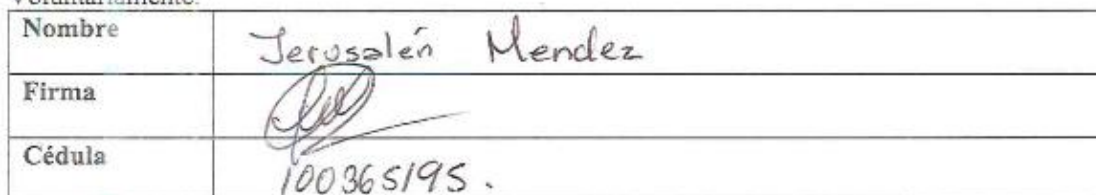 Voluntariamente.
Nombre Jerusalén Mendez
Firma
Cédula 100365195.